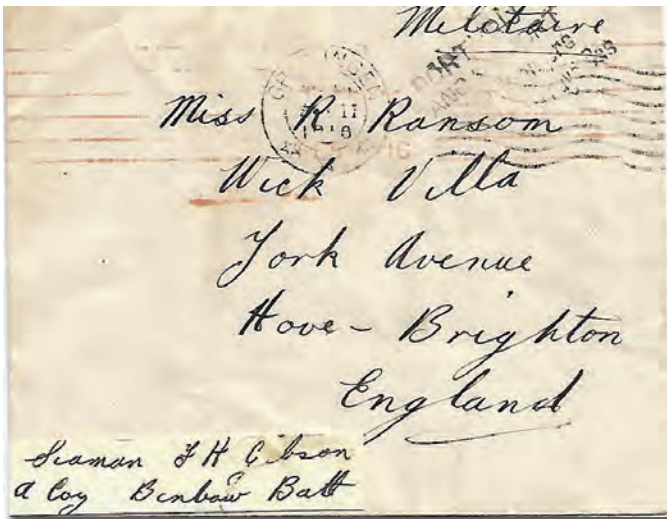 Militaire
11
Miss R Ransom
16
Wick Villa
York Avenue
Hove - Brighton
England
Seaman F H Gibson
A Coy Benbow Batt